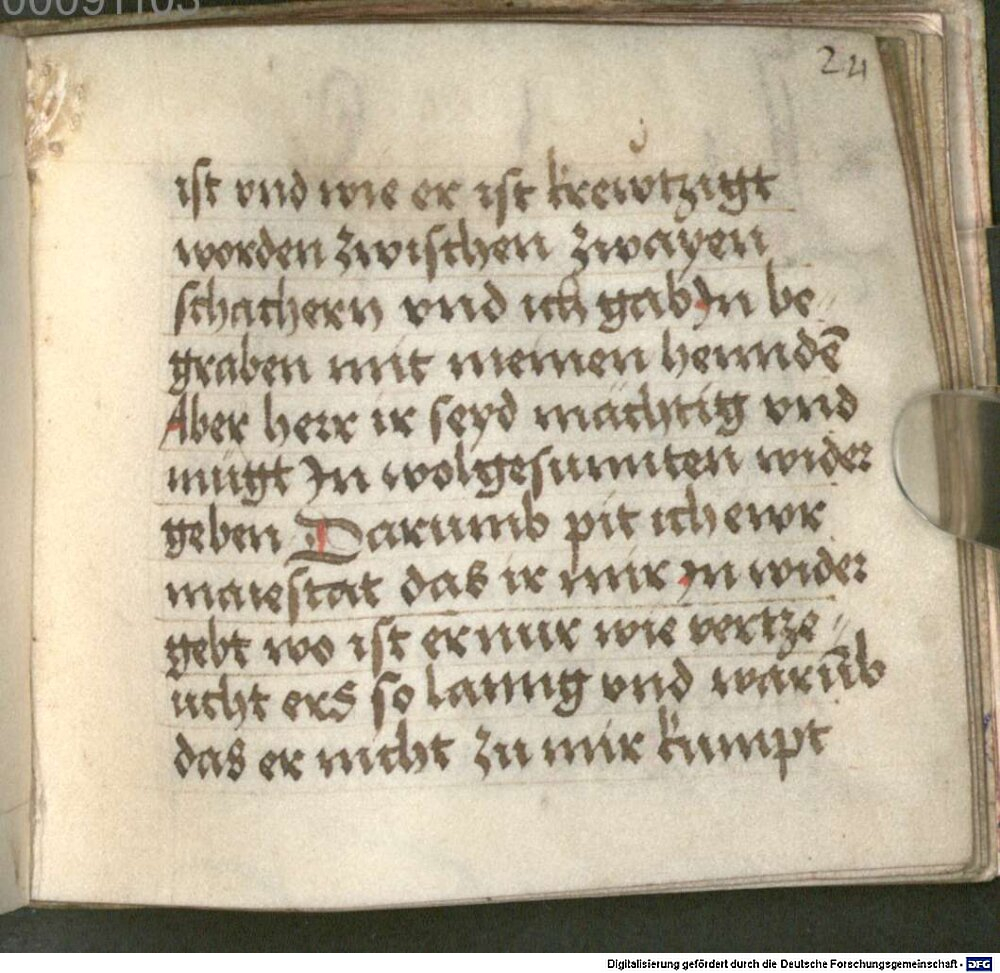 00091103
24
ist vnd wie er ist krewtzigt
worden zwischen zwayen
schachern vnd ich gab In be⸗
graben mit meinen hennndē
Aber herr ir seyd mächtig vnd
mügt In wolgesunnten wider
geben Darumb pit ich ewr
maiestat das ir mir In wider
gebt wo ist er nur wie vertze⸗
ucht ers so lanng vnd warūb
das er nicht zu mir kumpt
Digitalisierung gefördert durch die Deutsche Forschungsgemeinschaft - DFG